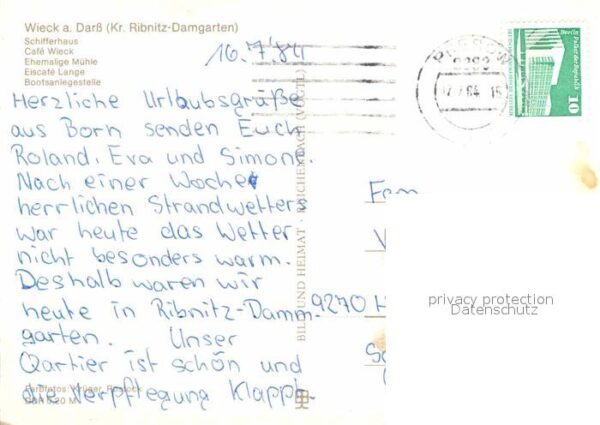 Wieck a. Darß (Kr. Ribnitz-Damgarten)
Schifferhaus
Café Wieck
Ehemalige Mühle
Eiscafé Lange
Bootsanlegestelle
16.7.84
Herzliche Urlaubsgrüße
aus Born senden Euch
Roland, Eva und Simone.
Nach einer Woche
herrlichen Strandwetters
war heute das Wetter
nicht besonders warm.
Deshalb waren wir
heute in Ribnitz-Damm-
garten. Unser
Qartier ist schön und
die Verpflegung klappt.
Farbfotos: Krüger, Rostock
BILD UND HEIMAT · REICHENBACH (VOGTL)
Berlin Palast der Republik
10
9270
privacy protection
Datenschutz